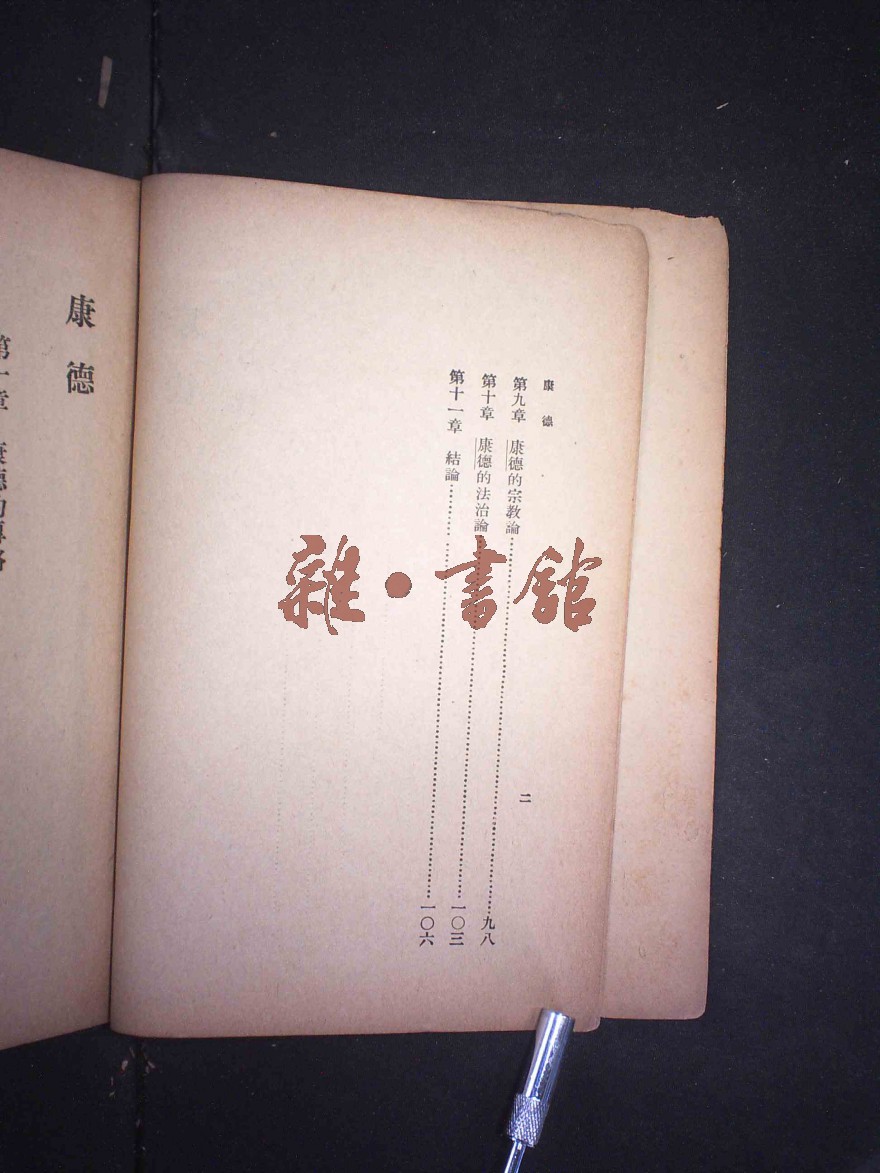 康德
第九章　康德的宗教論……九八
第十章　康德的法治論……一〇三
第十一章　結論……一〇六
二
雜·書館
康德
第一章　康德的傳略